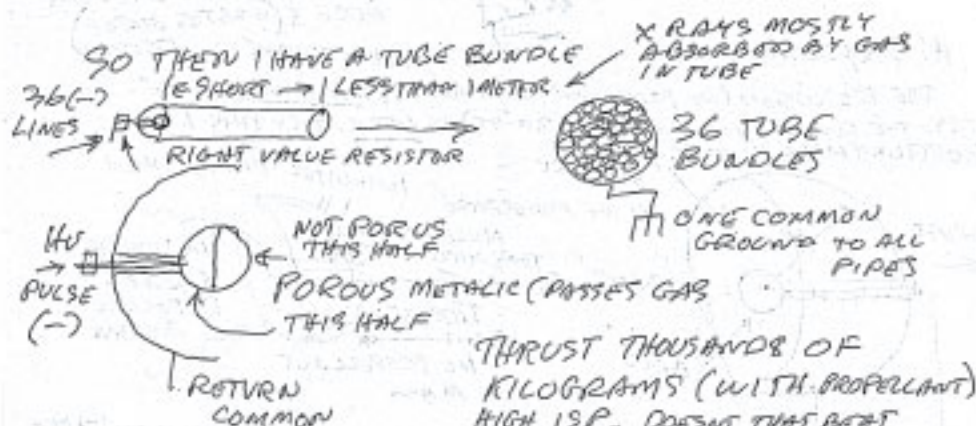 SO THEN I HAVE A TUBE BUNDLE
SHORT → LESS THAN 1 METER
X RAYS MOSTLY
ABSORBED BY GAS
IN TUBE
36 (-)
LINES
RIGHT VALUE RESISTOR
36 TUBE
BUNDLES
ONE COMMON
GROUND TO ALL
PIPES
HV
PULSE
(-)
NOT PORUS
THIS HALF
POROUS METALIC (PASSES GAS
THIS HALF
RETURN
COMMON
THRUST THOUSANDS OF
KILOGRAMS (WITH PROPELLANT)
HIGH ISP. DOESNT THAT BEAT